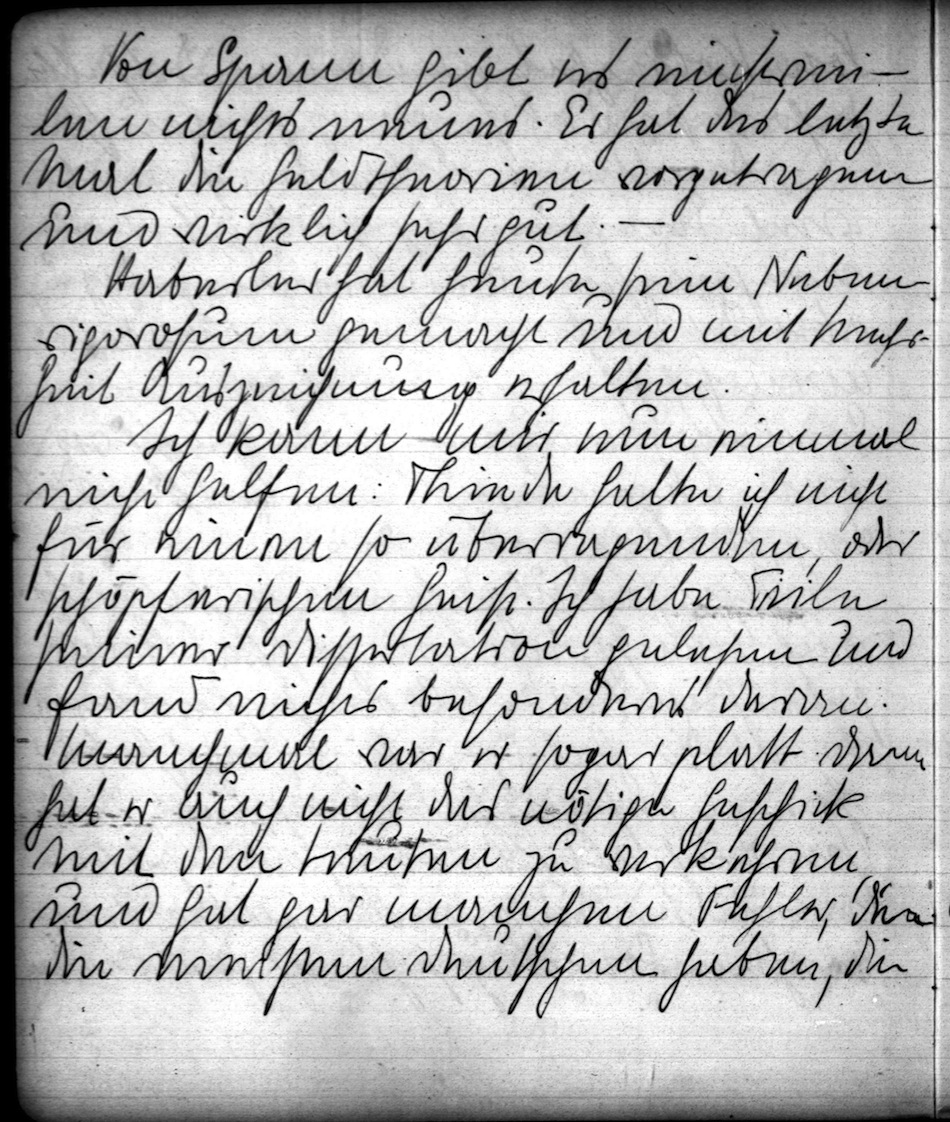 Von Spann gibt es mittlerwei-
len nichts neues. Er hat das letzte
Mal die Geldtheorien vorgetragen
und wirklich sehr gut. —
Haberler hat heute sein Neben-
rigorosum gemacht und mit Mehr-
heit Auszeichnung erhalten.
Ich kann mir nun einmal
nicht helfen: Thierde halte ich nicht
für einen so überragenden, oder
schöpferischen Geist. Ich habe Teile
seiner Dissertation gelesen und
fand nichts besonderes daran.
Manchmal war er sogar platt. dann
hat er auch nicht das nötige Geschick
mit den Leuten zu verkehren
und hat gar manchen Fehler, den
die meisten Deutschen haben, die